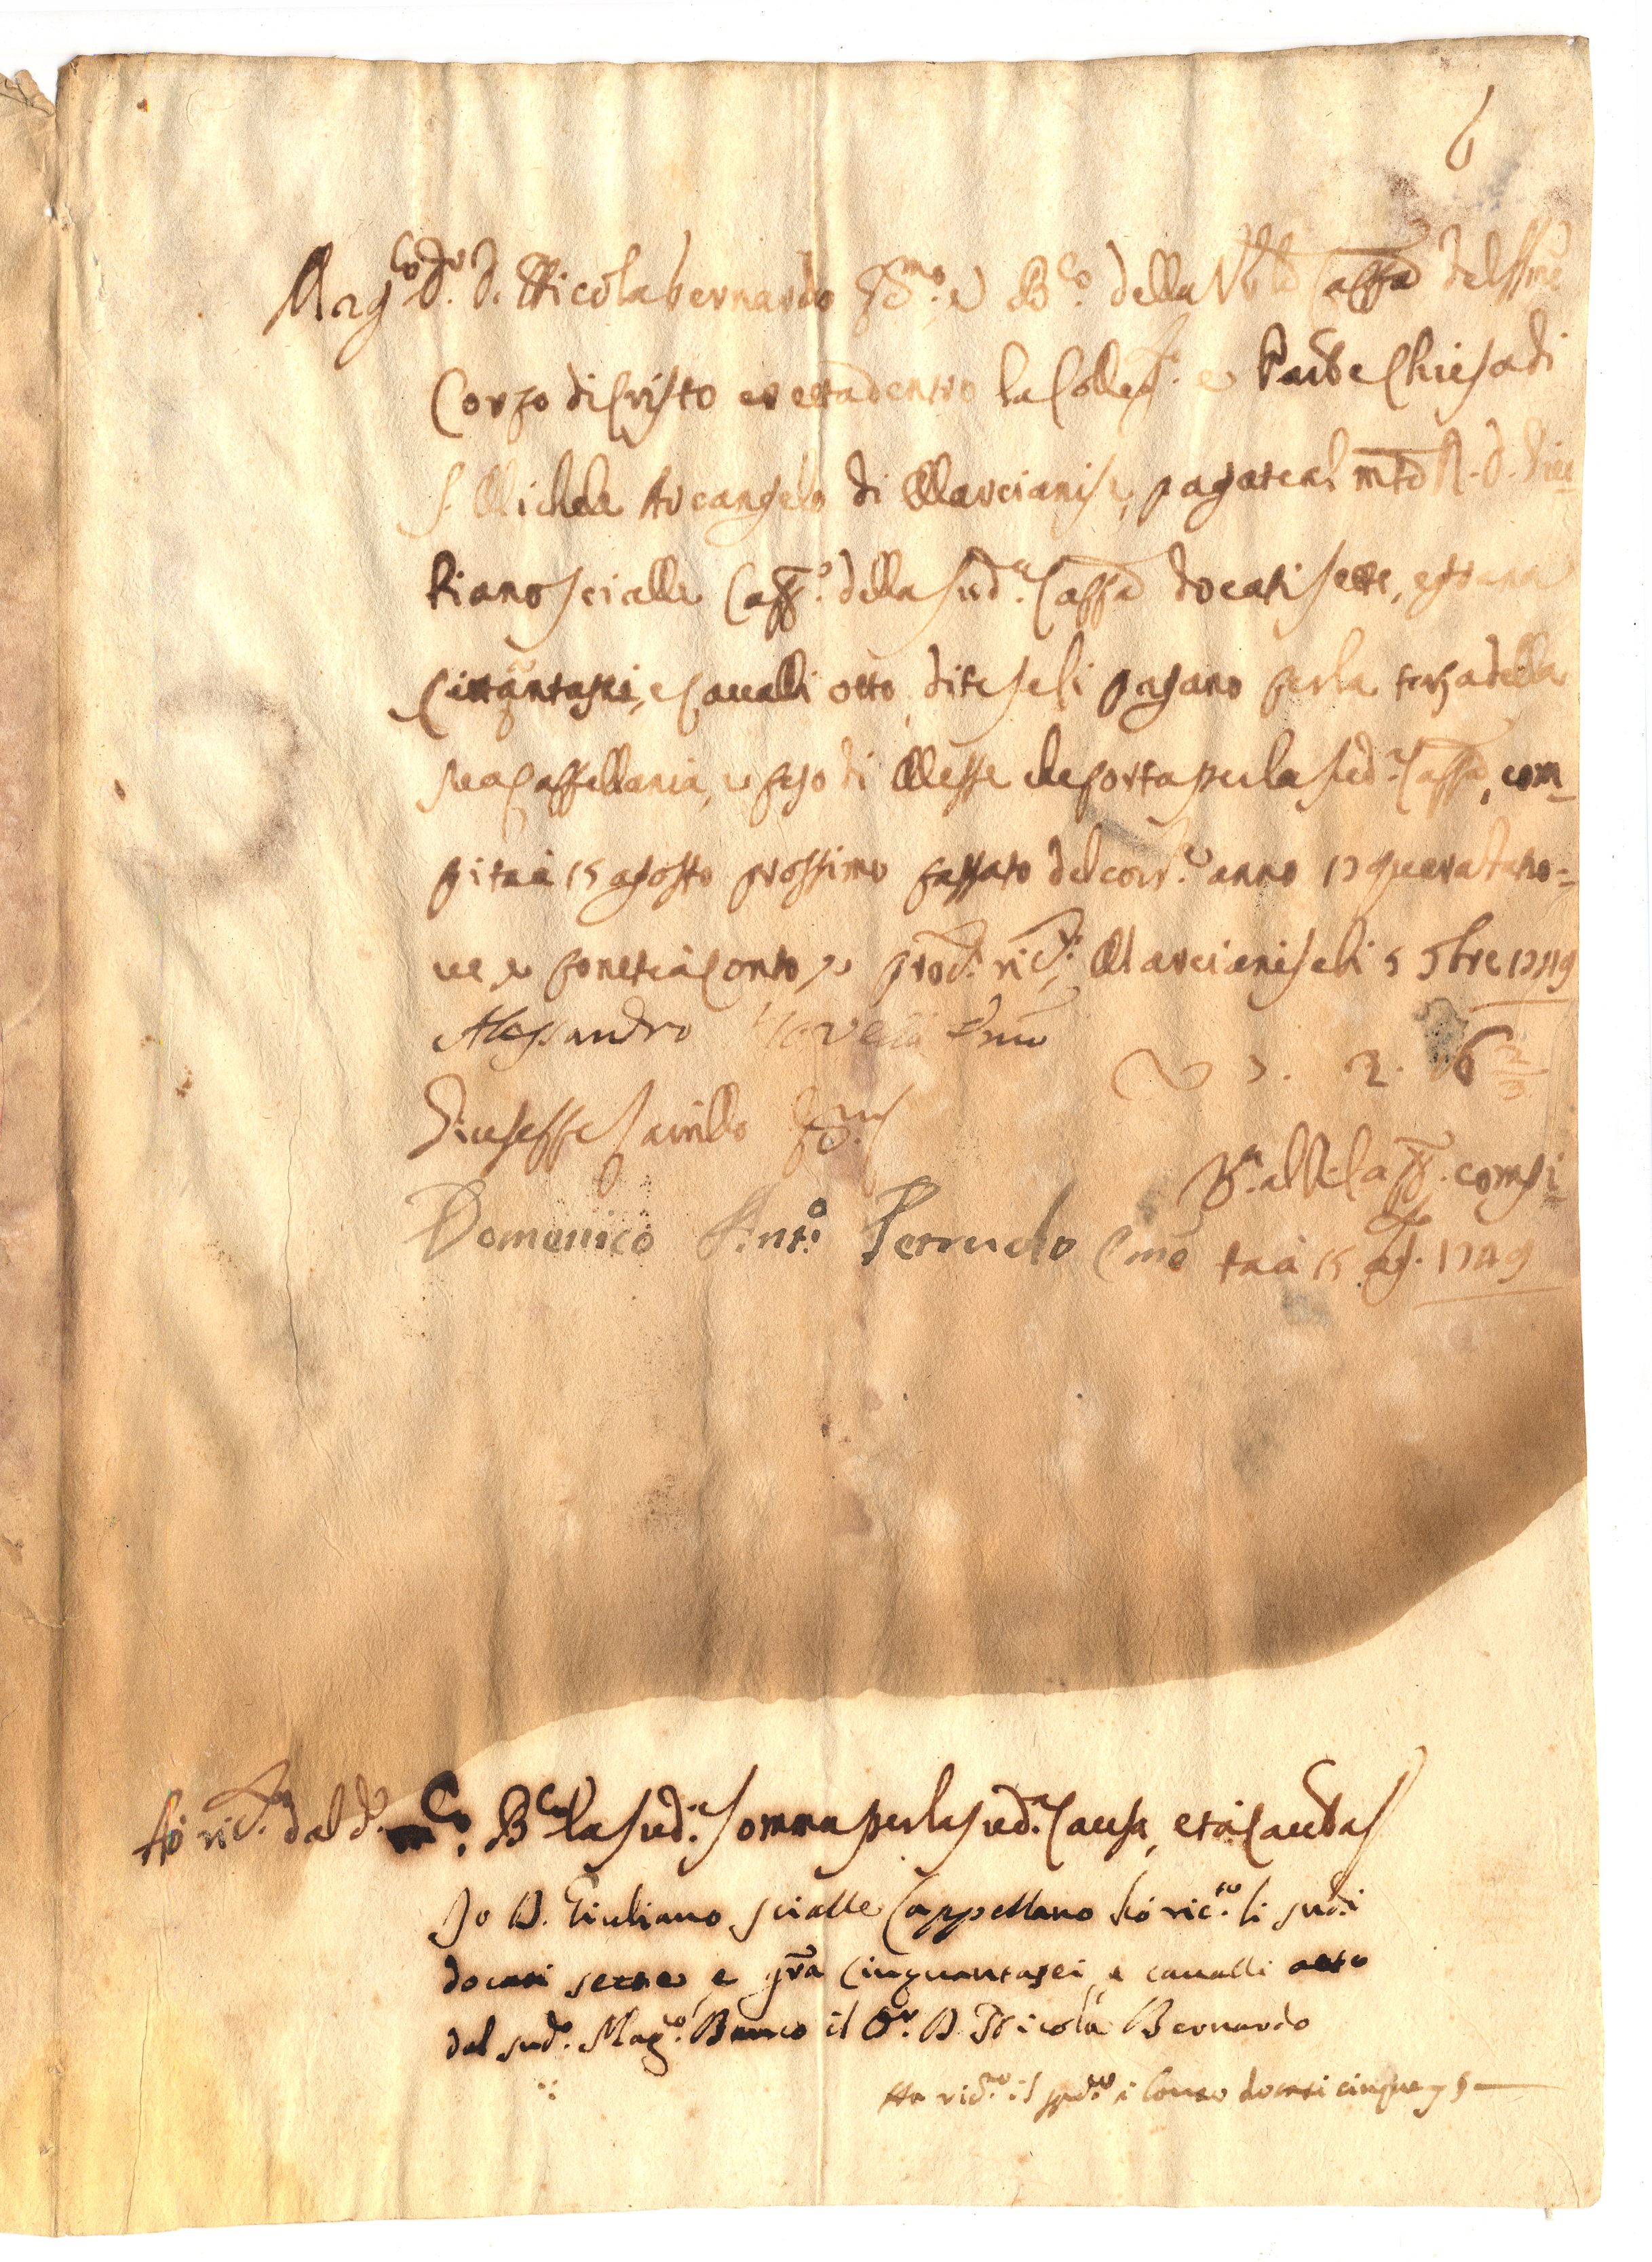 6
Mag.co Dr. D. Nicola bernardo e B.co della Ven.le Capp.a del SS.mo
Corpo di Cristo eretta dentro la Colleg.ta e Parôle Chiesa di
S. Michele Arcangelo di Marcianise, pagate al m.to R. D. Giu-
liano Scialle Capp.o della sud.a Capp.a docati sette, e grana
cinquantasei, e Cavalli otto, dite se li pagano per la terza della
sua Cappellania, e peso di Messe che porta per la sud.a Capp.a, com-
pita à 15 agosto prossimo passato del corr.te anno 17 quarantano=
ve e ponete à conto, e prod.e ric.ta, Marcianise li 5 9bre 1749
Alessandro Novelli Ecn̄o
Giuseppe Sarrillo
Domenico Ant.o Petruolo Ecn̄o
7. 2. 16 2/3
3.a al R. Capp. compi-
ta à 15 ag.to 1749
Hò ric.to dal d.o m.co B.co la sud.a somma per la sud.a causa, et à cautela
Io D. Giuliano Scialle Cappellano hò ric.to li sud.i
docati sette, e gr̄a cinquantasei, e cavalli otto
dal sud.o Mag.co Banco il Dr. D. Nicola Bernardo
Ha ric.to il sud.o à conto docati cinque 5